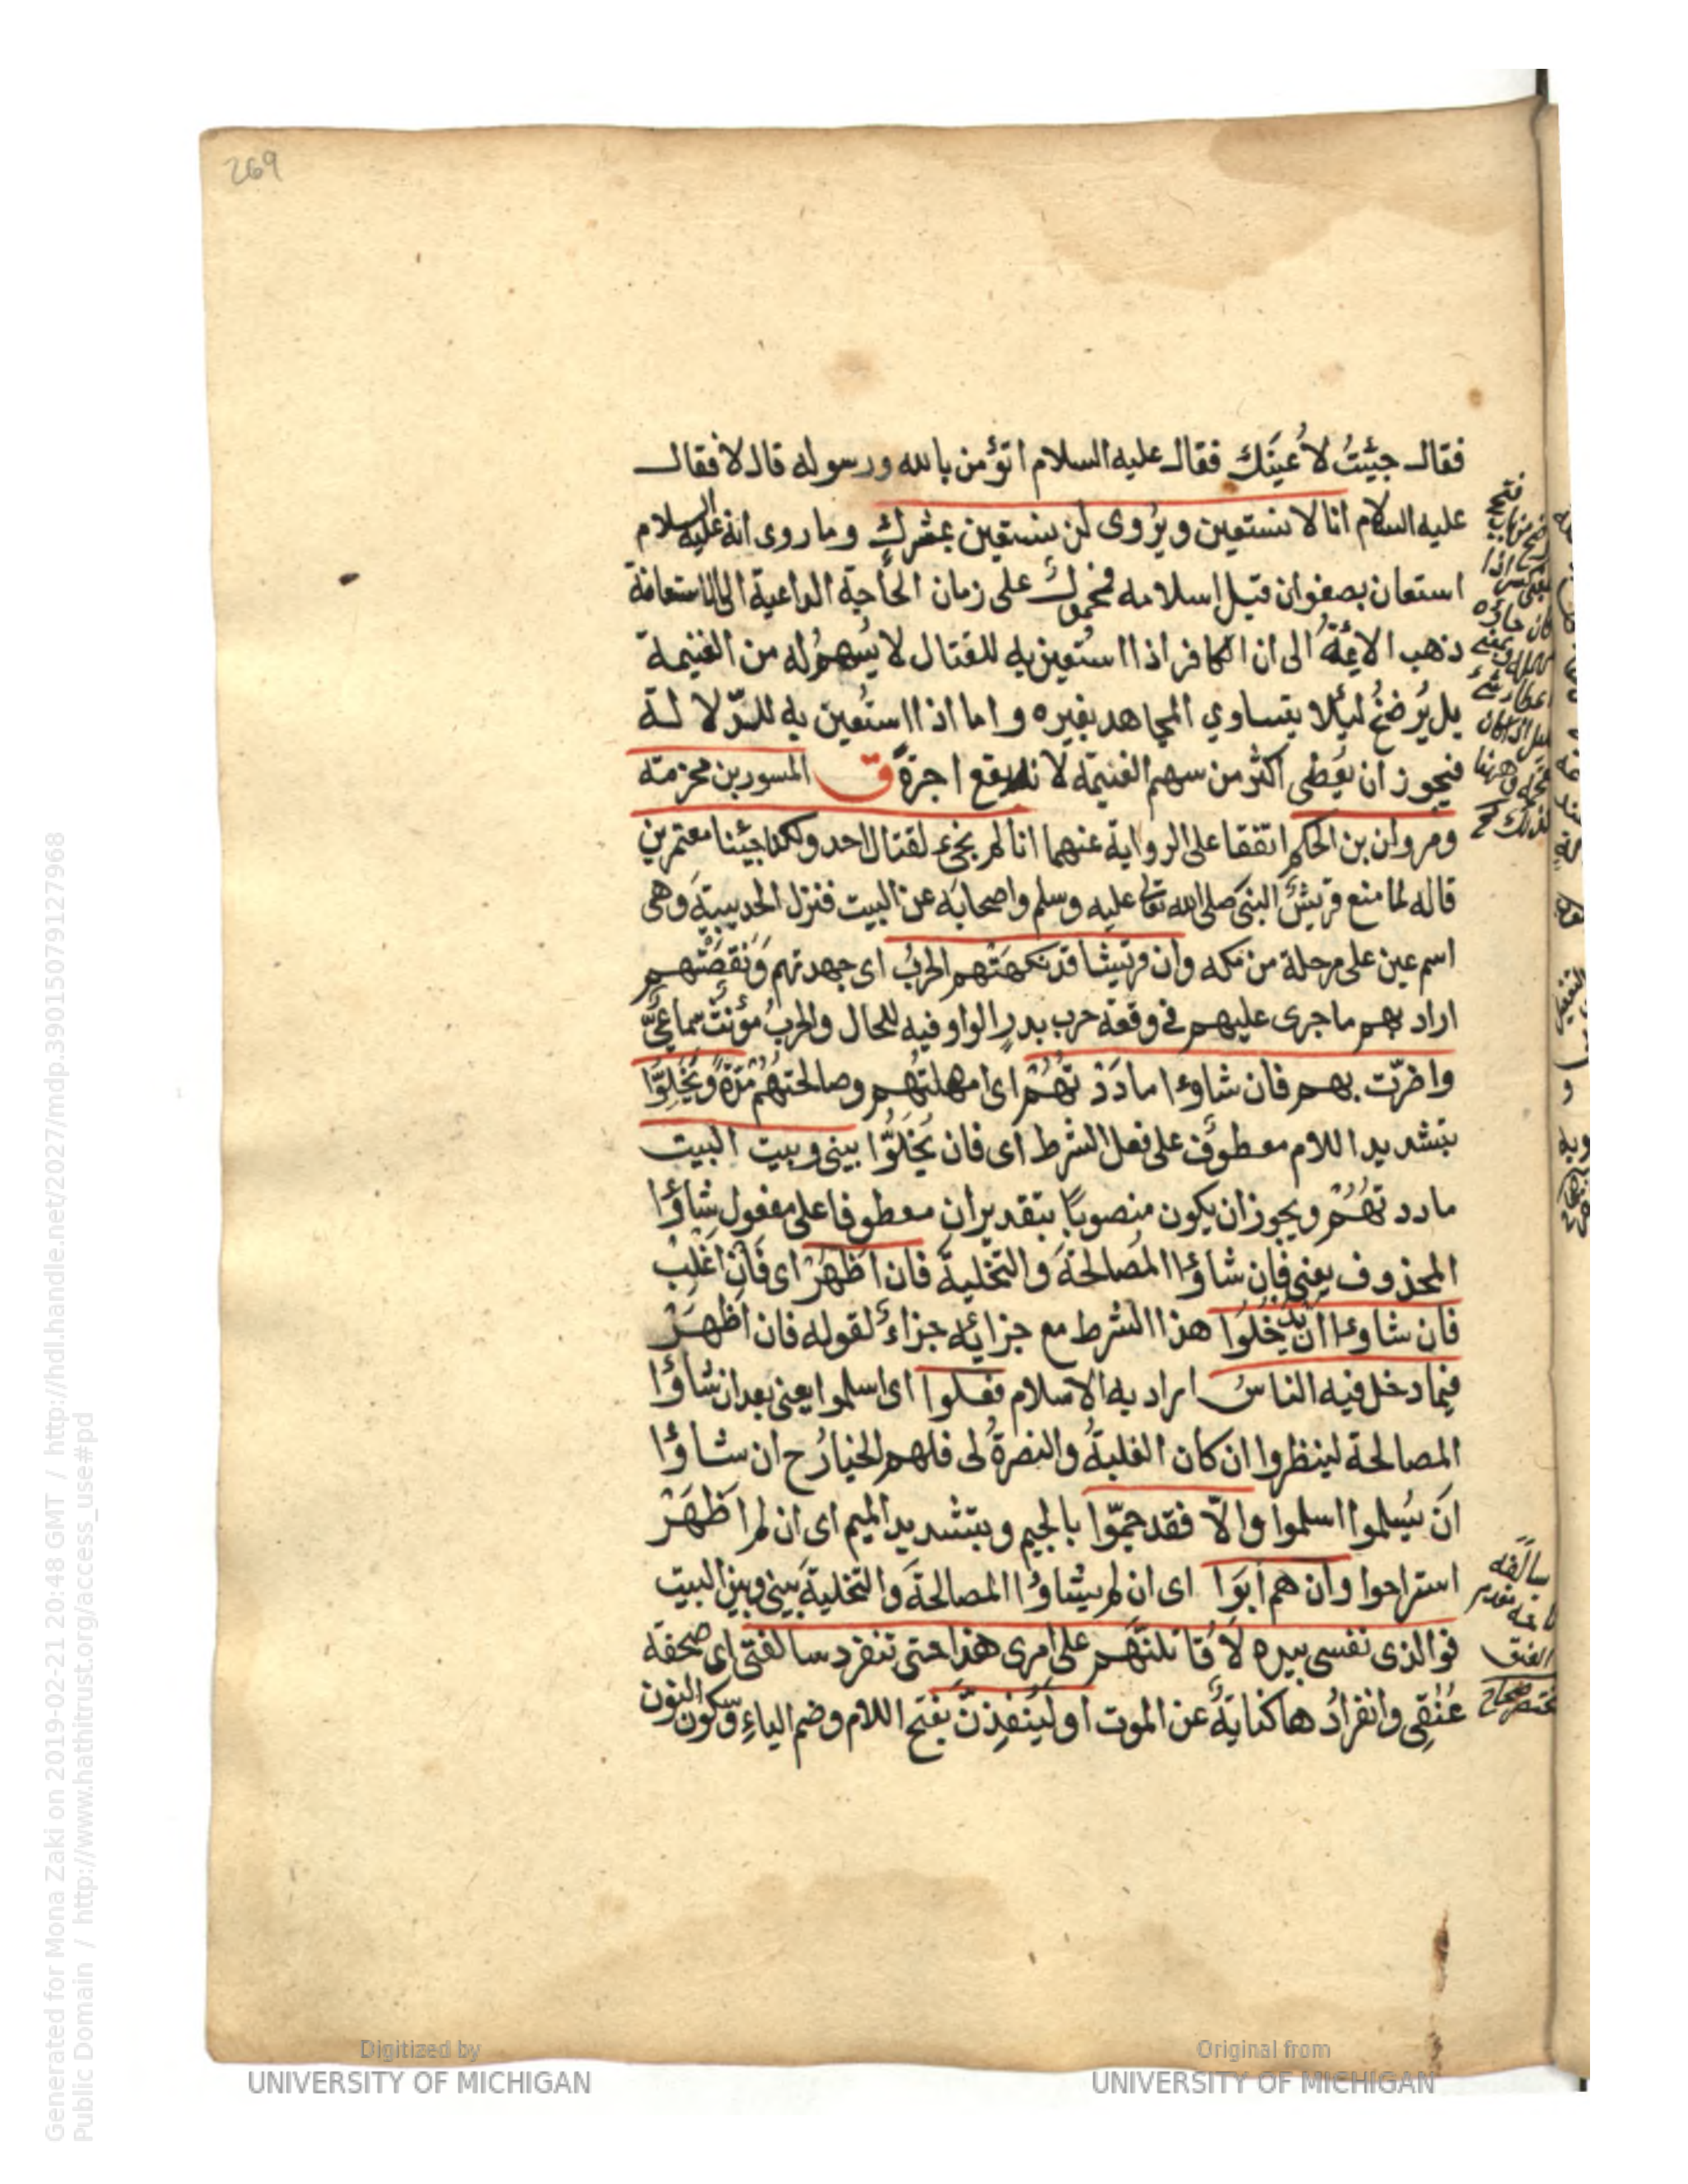 269
فقال جئتُ لاُعينَك فقال عليه السلام اتؤمن بالله ورسوله قال لا فقال
عليه السلام انا لا نستعين ويُروى لن نستعين بمشركٍ وما روى انه عليه السلام
استعان بصفوان قبل اسلامه فمحمولٌ على زمان الحاجة الداعية الى الاستعانة
ذهب الائمةُ الى ان الكافر اذا استُعين به للقتال لا يُسهمُ له من الغنيمة
بل يُرضخُ ليُلا يتساوي المجاهد بغيره واما اذا استُعين به للدّلالة
فيجوز ان يُعطى اكثر من سهم الغنيمة لانه يقع اجرةً ق المسور بن مخرمة
ومروان بن الحكم اتفقا على الرواية عنهما انا لم نجئ لقتال احد ولكنا جئنا معتمرين
قاله لما منع قريشٌ النبى صلى الله تعالى عليه وسلم واصحابَه عن البيت فنزل الحديبيةَ وهى
اسم عين على مرحلة من مكه وان قريشا قد نكهتهم الحربُ اى جهدتهم وَنَقَصَتْهم
اراد بهم ما جرى عليهم فى وقعة حرب بدرٍ الواو فيه للحال والحربُ مؤنثٌ سماعىٌّ
واضرّت بهم فان شاؤا مادَدْتُهُمْ اى امهلتُهم وصالحتهُمْ مُدّةً وَيُخَلّوُا
بتشديد اللام معطوفٌ على فعل الشرط اى فان يُخَلّوُا بينى وبين البيت
ماددتهُمْ ويجوز ان يكون منصوبًا بتقدير ان معطوفا على مفعول شاؤا
المحذوف يعنى فان شاؤا المصالحةَ والتخليةَ فان اَظْهَرْ اى فان اَغْلِبْ
فان شاؤا ان يدخلوا هذا الشرط مع جزائه جزاءٌ لقوله فان اظهَرْ
فيما دخل فيه الناسُ اراد به الاسلام فعلوا اى اسلموا يعنى بعد ان شاؤا
المصالحة لينظروا ان كان الغلبةُ والنصرةُ لى فلهم الخيارُ ح ان شاؤا
اَنْ يُسلموا اسلموا والّا فقد جمّوا بالجيم وبتشديد الميم اى ان لم اَظْهَرْ
استراحوا وان هم ابَوْا اى ان لم يشاؤا المصالحةَ والتخليةَ بينى وبين البيت
فوالذى نفسى بيده لاُقاتلنّهم على امرى هذا حتى تنفرد سالفتى اى صفحة
عُنُقِى وانفرادُها كنايةٌ عن الموت اولَيُنفِذنّ بفتح اللام وضم الياءِ وسكون النون
سالفه
العنق
Generated for Mona Zaki on 2019-02-21 20:48 GMT / http://hdl.handle.net/2027/mdp.39015079127968
Public Domain / http://www.hathitrust.org/access_use#pd
Digitized by
UNIVERSITY OF MICHIGAN
Original from
UNIVERSITY OF MICHIGAN